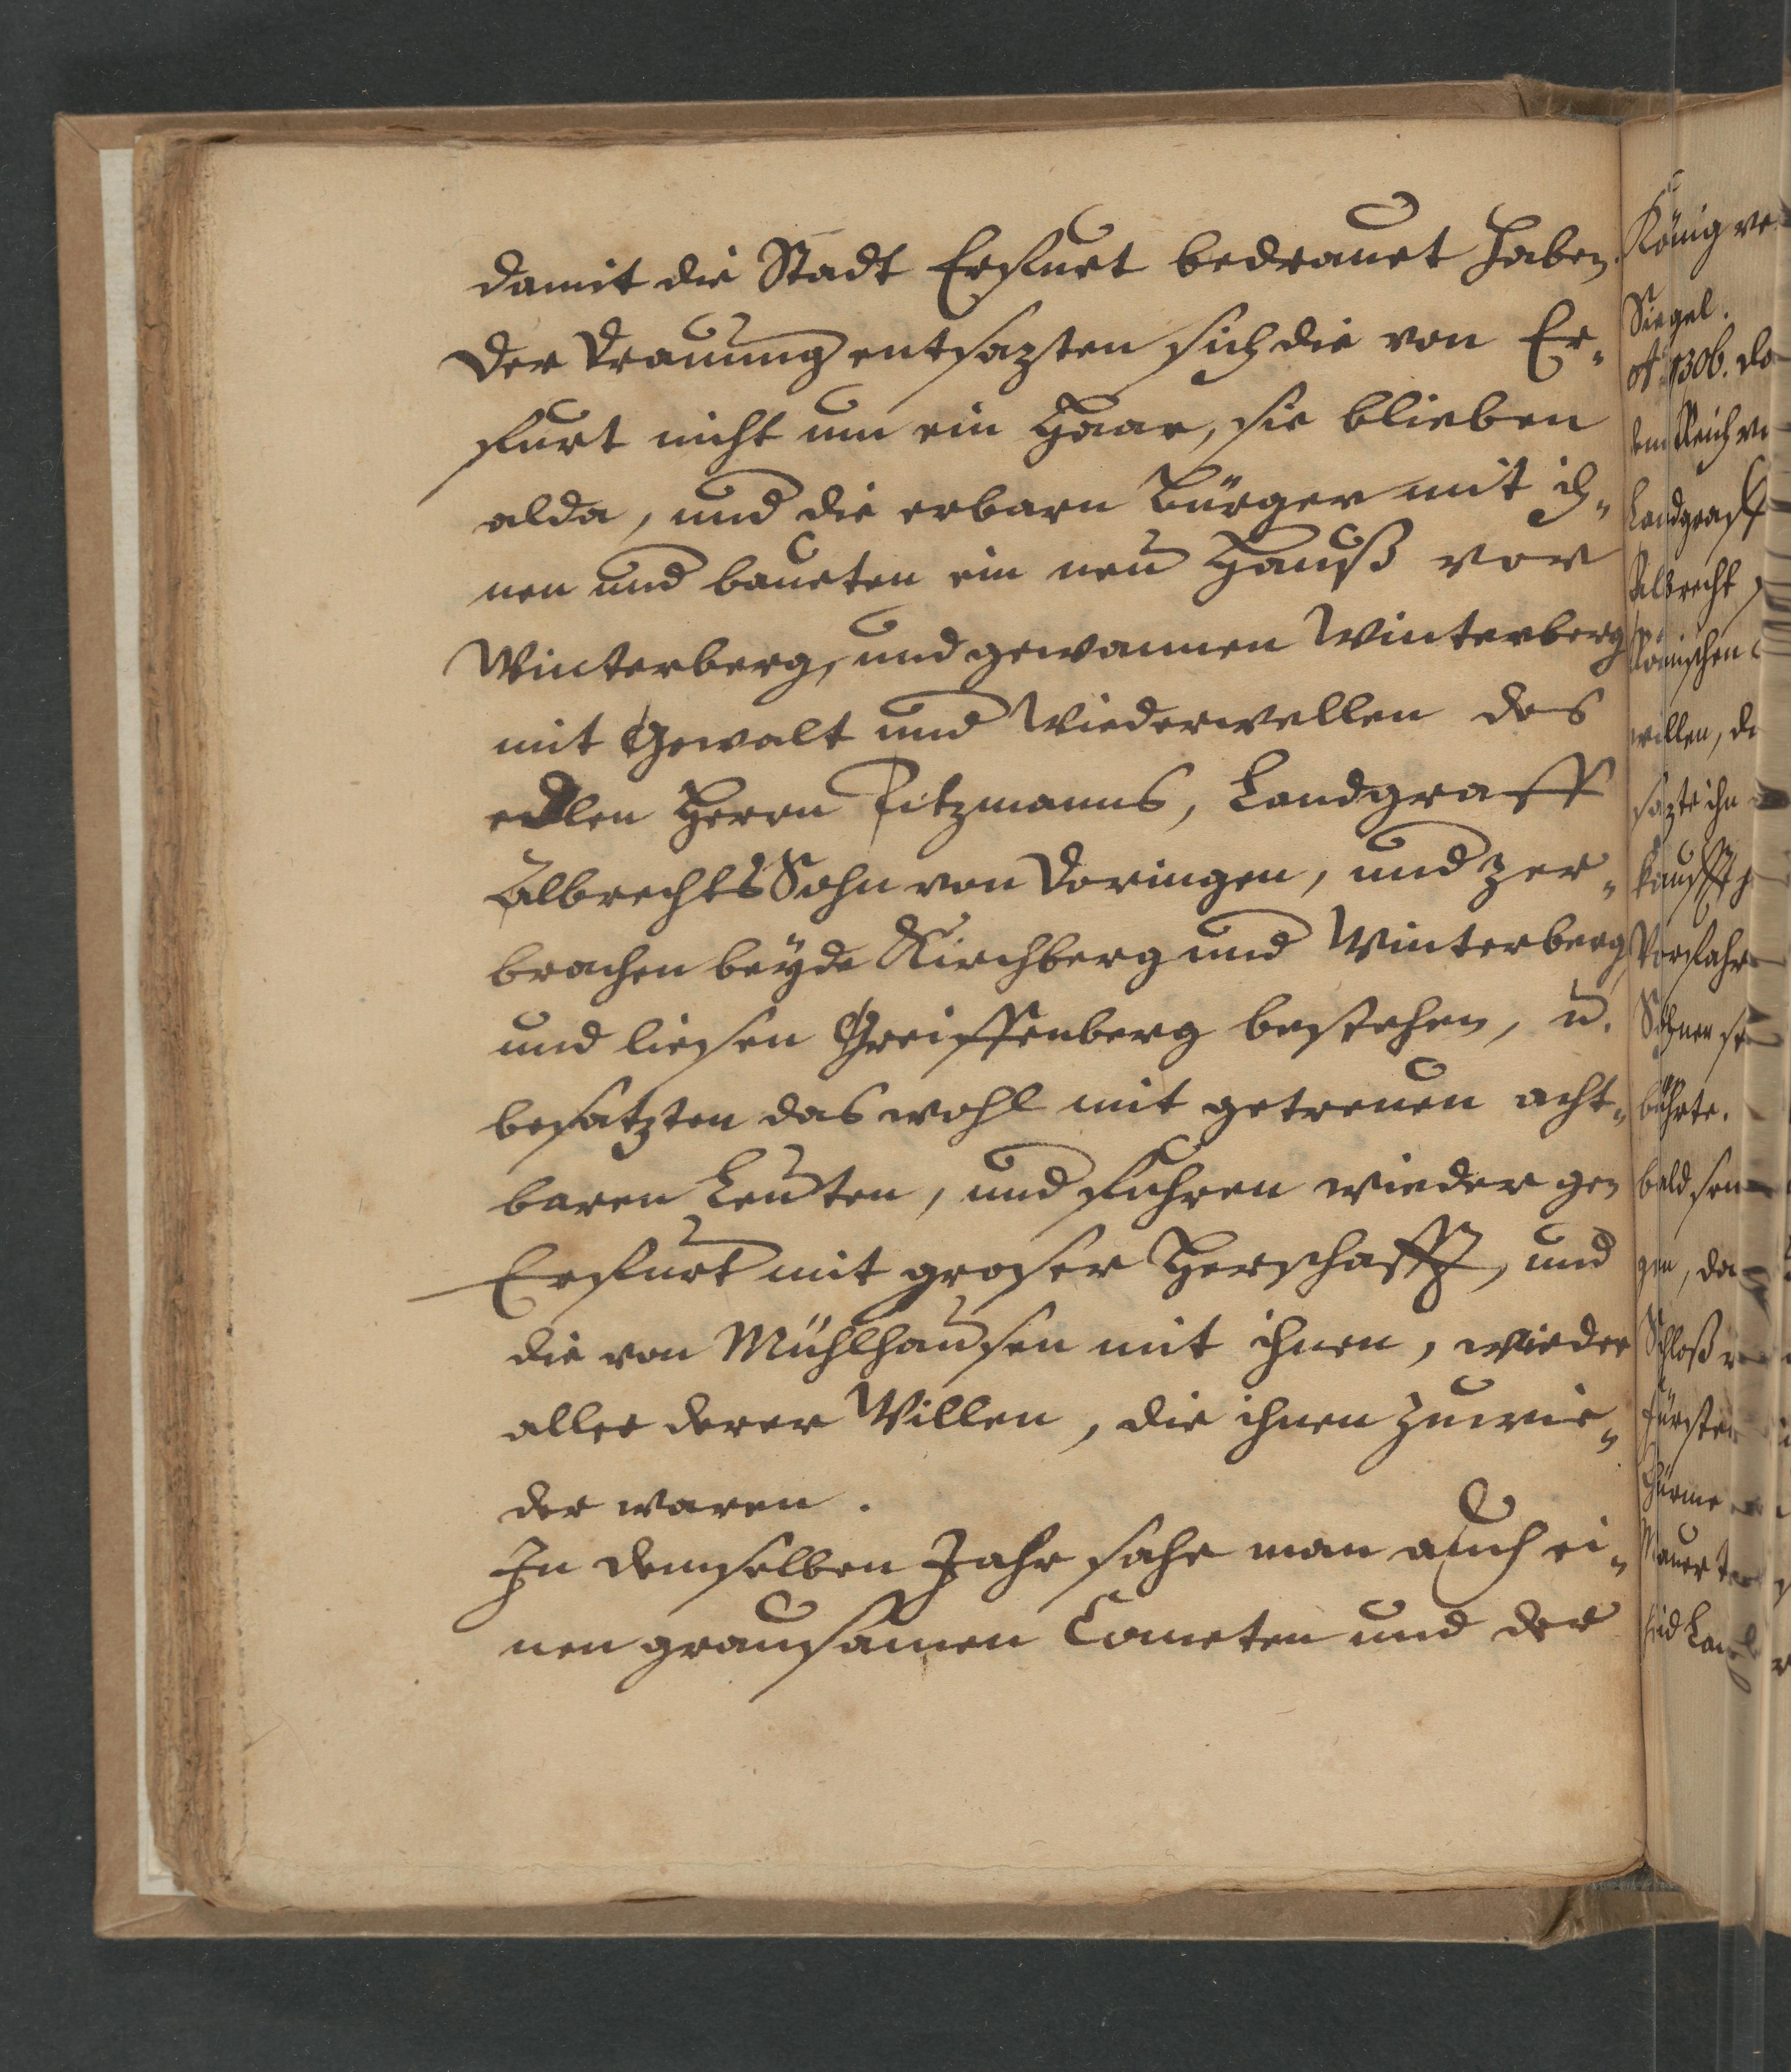 damit die Stadt Erffurt bedrauet haben.
Der Drauung entsazten sich die von Er-
ffurt nicht um ein Haar, sie blieben
alda, und die erbarn Bürger mit ih-
nen und baueten ein neu Hauß vor
Winterberg, und gewannen Winterberg
mit Gewalt und Wiederwellen des
edlen Herrn Titzmanns, Landgraff
Albrechts Sohn von Doringen, und zer-
brachen beyde Kirchberg und Winterberg
und liesen Greiffenberg bestehen, u.
besatzten das wohl mit getreuen acht-
baren Leuten, und fuhren wieder gen
Erffurt mit groser Herschafft, und
die von Mühlhausen mit ihnen, wieder
aller derer Willen, die ihnen zuwie-
der waren.
In demselben Jahr sahe man auch ei-
nen grausamen Cometen und der
König
Siegel.
1306.
dem Reich
Landgraff
Albrecht
Römischen
willen, de
sazte ihn
kaufft
Vorfahr
Söhnen
bührte.
bald
gen, da
Schloß
Fürsten
Thürme
Mauer